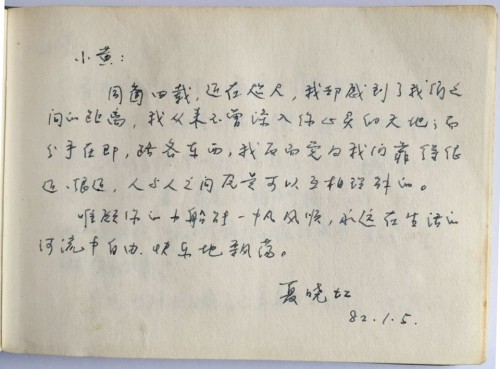 小黄:
同窗四载，近在咫尺，我却感到了我们之
间的距离，我从来不曾深入你心灵的天地；而
分手在即，路各东西，我反而觉得我们靠得很
近、很近，人与人之间尽是可以互相理解的。
唯愿你的小船能一帆风顺，永远在生活的
河流中自由、快乐地飘荡。
夏晓虹
82.1.5.